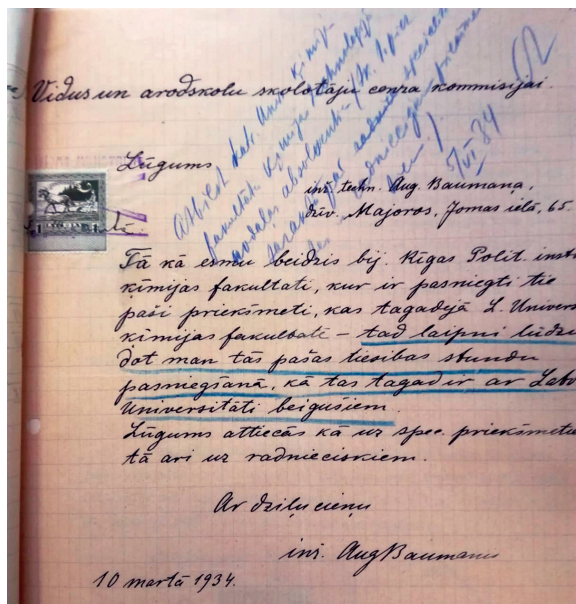 Vidus un arodskolu skolotāju cenza kommisijai.
Lūgums
inž. techn. Aug. Baumaņa,
dzīv. Majoros, Jomas ielā, 65.
Atbilst Latv. Univ. Ķīmijas
fakultātes
nodaļas
5/VI 34
Tā kā esmu beidzis bij. Rīgas Polit. instit
ķīmijas fakultati, kur ir pasniegti tie
paši priekšmeti, kas tagadējā L. Univers
ķīmijas fakultatē – tad laipni lūdzu
dot man tās pašas tiesības stundu
pasniegšanā, kā tas tagad ir ar Latv
Universitāti beigušiem.
Lūgums attiecās kā uz spec. priekšmetie
tā ari uz radnieciskiem.
Ar dziļu cieņu
inž. Aug Baumans
10 martā 1934.